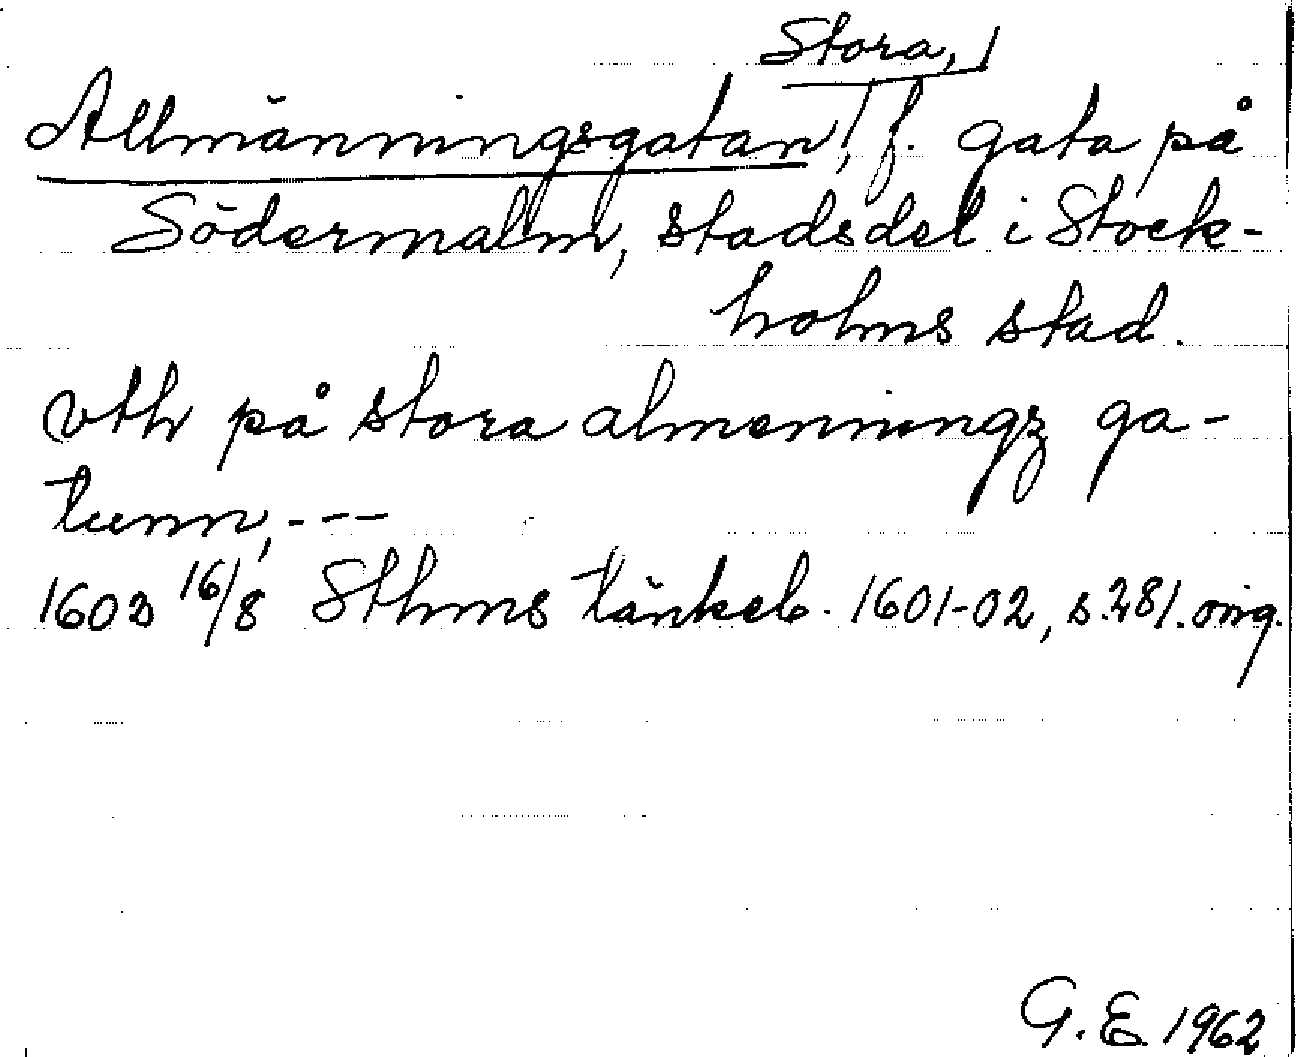 Stora,
Allmänningsgatan, f. gata på
Södermalm, stadsdel i Stock-
holms stad.
vth på stora almenningz ga-
tunn, ---
1602 16/8 Sthms tänkeb. 1601-02, s. 281. orig.
G. E. 1962